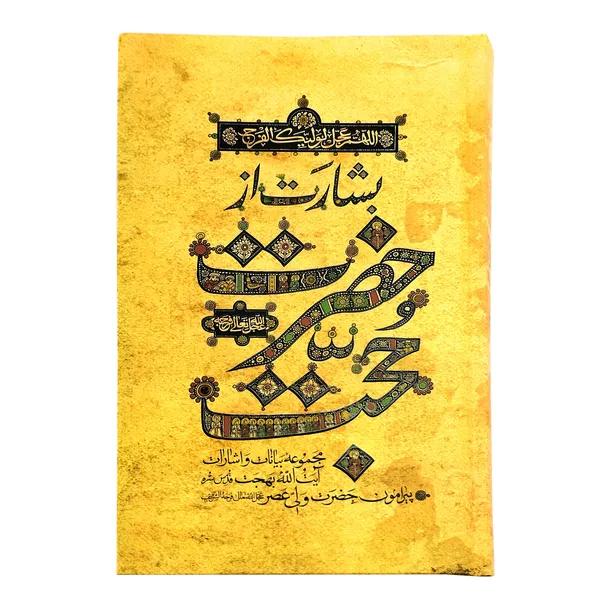 اللهم عجل لولیک الفرج
بشارت از
حضرت
حجت
مجموعه بیانات و اشارات
آیت الله بهجت قدس سره
پیرامون حضرت ولی عصر عجل الله تعالی فرجه الشریف